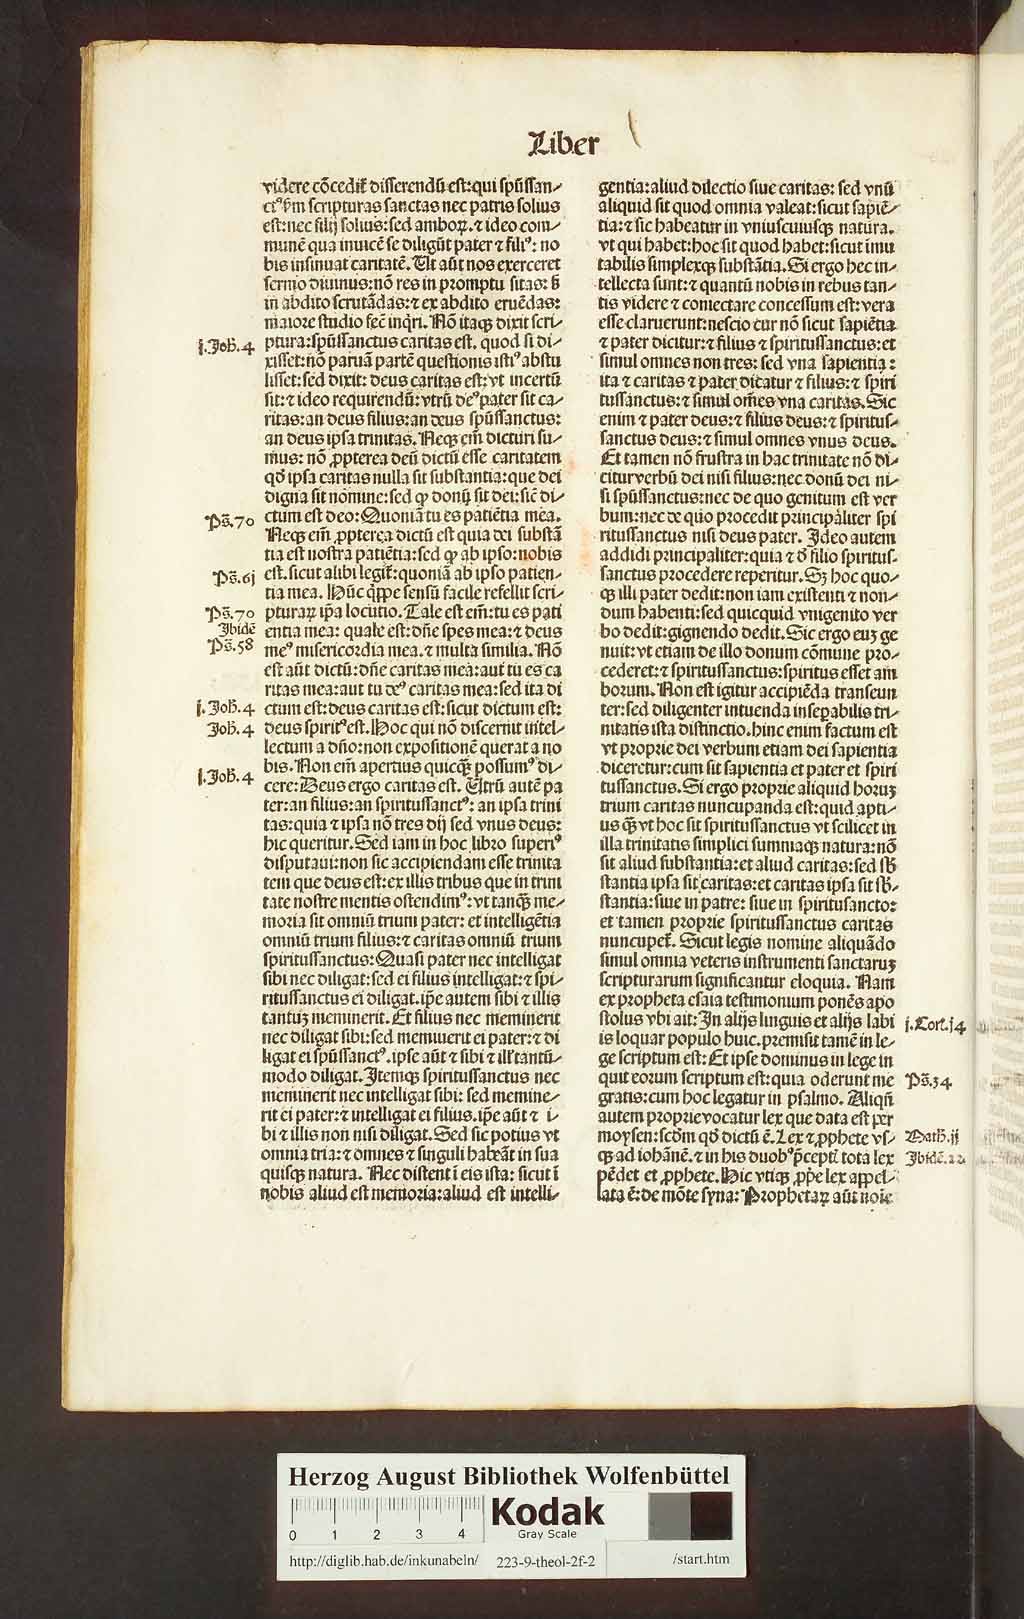 Liber
videre cōcedit̄ disserendū est:qui spūssan-
ct⁹ ẜm scripturas sanctas nec patris solius
est:nec filij solius:sed amboꝝ.⁊ ideo com-
munē qua inuicē se diligūt pater ⁊ fili⁹: no
bis insinuat caritatē. Ut aūt nos exerceret
sermo diuinus: nō res in promptu sitas: ẜ
in abdito scrutādas:⁊ ex abdito eruēdas:
maiore studio fec̄ inq̄ri. Nō itaqꝫ dixit scri-
ptura:spūssanctus caritas est. quod si di-
xisset: nō paruā partē questionis isti⁹ abstu
lisset: sed dixit: deus caritas est: vt incertū
sit:⁊ ideo requirendū: vtrū de⁹ pater sit ca-
ritas: an deus filius: an deus spūssanctus:
an deus ipsa trinitas. Neqꝫ em̄ dicturi su-
mus: nō ꝓpterea deū dictū esse caritatem
qd̄ ipsa caritas nulla sit substantia: que dei
digna sit nomine: sed ꝙ donū sit dei: sic̄ di-
ctum est deo: Quoniā tu es patiētia mea.
Neqꝫ em̄ ꝓpterea dictū est quia dei substā
tia est nostra patiētia: sed ꝙ ab ipso: nobis
est. sicut alibi legit̄: quoniā ab ipso patien-
tia mea. Hūc q̄ppe sensū facile refellit scri-
pturaꝝ ip̄a locutio. Tale est em̄: tu es pati
entia mea: quale est: dn̄e spes mea:⁊ deus
me⁹ misericordia mea. ⁊ multa similia. Nō
est aūt dictū: dn̄e caritas mea: aut tu es ca
ritas mea: aut tu de⁹ caritas mea: sed ita di
ctum est: deus caritas est: sicut dictum est:
deus spirit⁹ est. Hoc qui nō discernit intel-
lectum a dn̄o: non expositionē querat a no
bis. Non em̄ apertius quicqꝫ possum⁹ di-
cere: Deus ergo caritas est. Utrū autē pa
ter: an filius: an spiritussanct⁹: an ipsa trini
tas: quia ⁊ ipsa nō tres dij sed vnus deus:
hic queritur. Sed iam in hoc libro superi⁹
disputaui: non sic accipiendam esse trinita
tem que deus est: ex illis tribus que in trini
tate nostre mentis ostendim⁹: vt tanqꝫ me-
moria sit omniū trium pater: et intelligētia
omniū trium filius:⁊ caritas omniū trium
spiritussanctus: Quasi pater nec intelligat
sibi nec diligat: sed ei filius intelligat:⁊ spi-
ritussanctus ei diligat. ip̄e autem sibi ⁊ illis
tantuꝫ meminerit. Et filius nec meminerit
nec diligat sibi: sed meminerit ei pater:⁊ di
ligat ei spūssanct⁹. ipse aūt ⁊ sibi ⁊ ill' tantū-
modo diligat. Itemqꝫ spiritussanctus nec
meminerit nec intelligat sibi: sed memine-
rit ei pater:⁊ intelligat ei filius. ip̄e aūt ⁊ i-
bi ⁊ illis non nisi diligat. Sed sic potius vt
omnia tria:⁊ omnes ⁊ singuli habeāt in sua
quisqꝫ natura. Nec distent ī eis ista: sicut ī
nobis aliud est memoria: aliud est intelli-
j. Joh̄. 4
Ps̄. 70
Ps̄. 6j
Ps̄. 70
Ibidē
Ps̄. 58
j. Joh̄. 4
Joh̄. 4
j. Joh̄. 4
gentia: aliud dilectio siue caritas: sed vnū
aliquid sit quod omnia valeat: sicut sapiē-
tia:⁊ sic habeatur in vniuscuiusqꝫ natura.
vt qui habet: hoc sit quod habet: sicut īmu
tabilis simplexqꝫ substātia. Si ergo hec in-
tellecta sunt:⁊ quantū nobis in rebus tan-
tis videre ⁊ coniectare concessum est: vera
esse claruerunt: nescio cur nō sicut sapiētia
⁊ pater dicitur:⁊ filius ⁊ spiritussanctus: et
simul omnes non tres: sed vna sapientia:
ita ⁊ caritas ⁊ pater dicatur ⁊ filius:⁊ spiri
tussanctus:⁊ simul om̄es vna caritas. Sic
enim ⁊ pater deus:⁊ filius deus:⁊ spiritus-
sanctus deus:⁊ simul omnes vnus deus.
Et tamen nō frustra in hac trinitate nō di-
citur verbū dei nisi filius: nec donū dei ni-
si spūssanctus: nec de quo genitum est ver
bum: nec de quo procedit principaliter spi
ritussanctus nisi deus pater. Ideo autem
addidi principaliter: quia ⁊ d̄ filio spiritus-
sanctus procedere reperitur. Sꝫ hoc quo-
qꝫ illi pater dedit: non iam existenti ⁊ non-
dum habenti: sed quicquid vnigenito ver
bo dedit: gignendo dedit. Sic ergo euꝫ ge
nuit: vt etiam de illo donum cōmune pro-
cederet:⁊ spiritussanctus: spiritus esset am
borum. Non est igitur accipiēda transeun
ter: sed diligenter intuenda inseꝑabilis tri-
nitatis ista distinctio. hinc enim factum est
vt proprie dei verbum etiam dei sapientia
diceretur: cum sit sapientia et pater et spiri
tussanctus. Si ergo proprie aliquid horuꝫ
trium caritas nuncupanda est: quid apti-
us qꝫ vt hoc sit spiritussanctus vt scilicet in
illa trinitatis simplici summaqꝫ natura: nō
sit aliud substantia: et aliud caritas: sed sb̄
stantia ipsa sit caritas: et caritas ipsa sit sb̄-
stantia: siue in patre: siue in spiritusancto:
et tamen proprie spiritussanctus caritas
nuncupet̄. Sicut legis nomine aliquādo
simul omnia veteris instrumenti sanctaruꝫ
scripturarum significantur eloquia. Nam
ex propheta esaia testimonium ponēs apo
stolus vbi ait: In alijs linguis et alijs labi
is loquar populo huic. premisit tamē in le-
ge scriptum est: Et ipse dominus in lege in
quit eorum scriptum est: quia oderunt me
gratis: cum hoc legatur in psalmo. Aliqn̄
autem proprie vocatur lex que data est per
moysen: scd̄m qd̄ dictū ē. Lex ⁊ ꝓphete vs-
qꝫ ad iohānē. ⁊ in his duob⁹ p̄cept̄ tota lex
pēdet et ꝓphete. Hic vtiqꝫ ꝓp̄e lex appel-
lata ē: de mōte syna: Prophetaꝝ aūt noīe
j. Cort. j4
Ps̄. 34
Math̄. jj
Ibidē. 22
Herzog August Bibliothek Wolfenbüttel
0 1 2 3 4
Kodak
Gray Scale
http://diglib.hab.de/inkunabeln/ 223-9-theol-2f-2 /start.htm